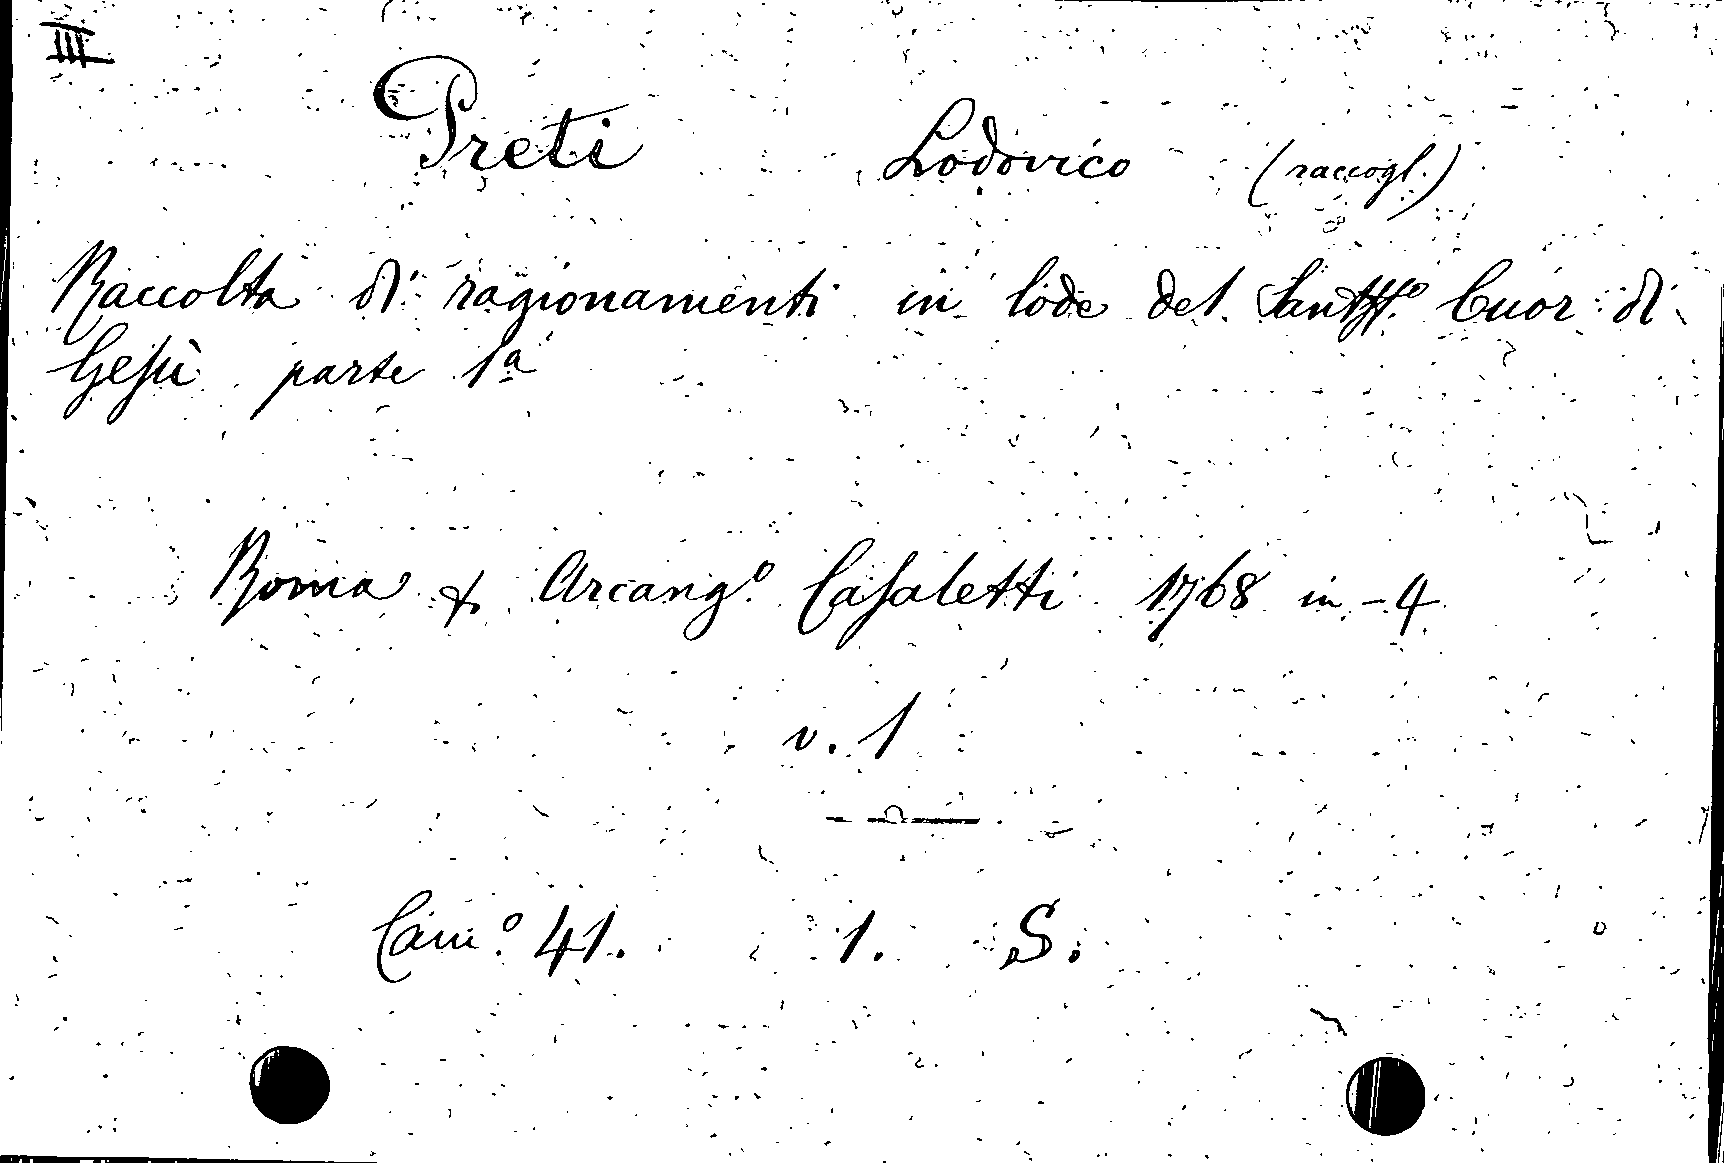 III
Preti Lodovico (raccogl.)
Raccolta di ragionamenti in lode del Santss.º Cuor di
Gesù parte 1ª
Roma x Arcang.º Casaletti 1768 in-4
v. 1
Cam.º 41. 1. S.